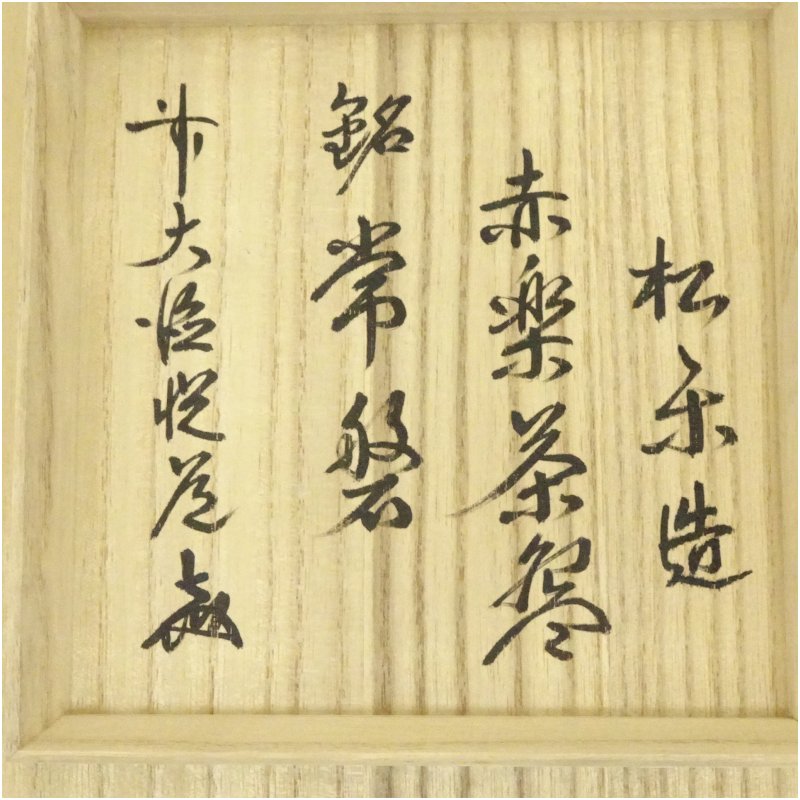 松楽造
赤楽茶碗
銘 常磐
前大徳悦道